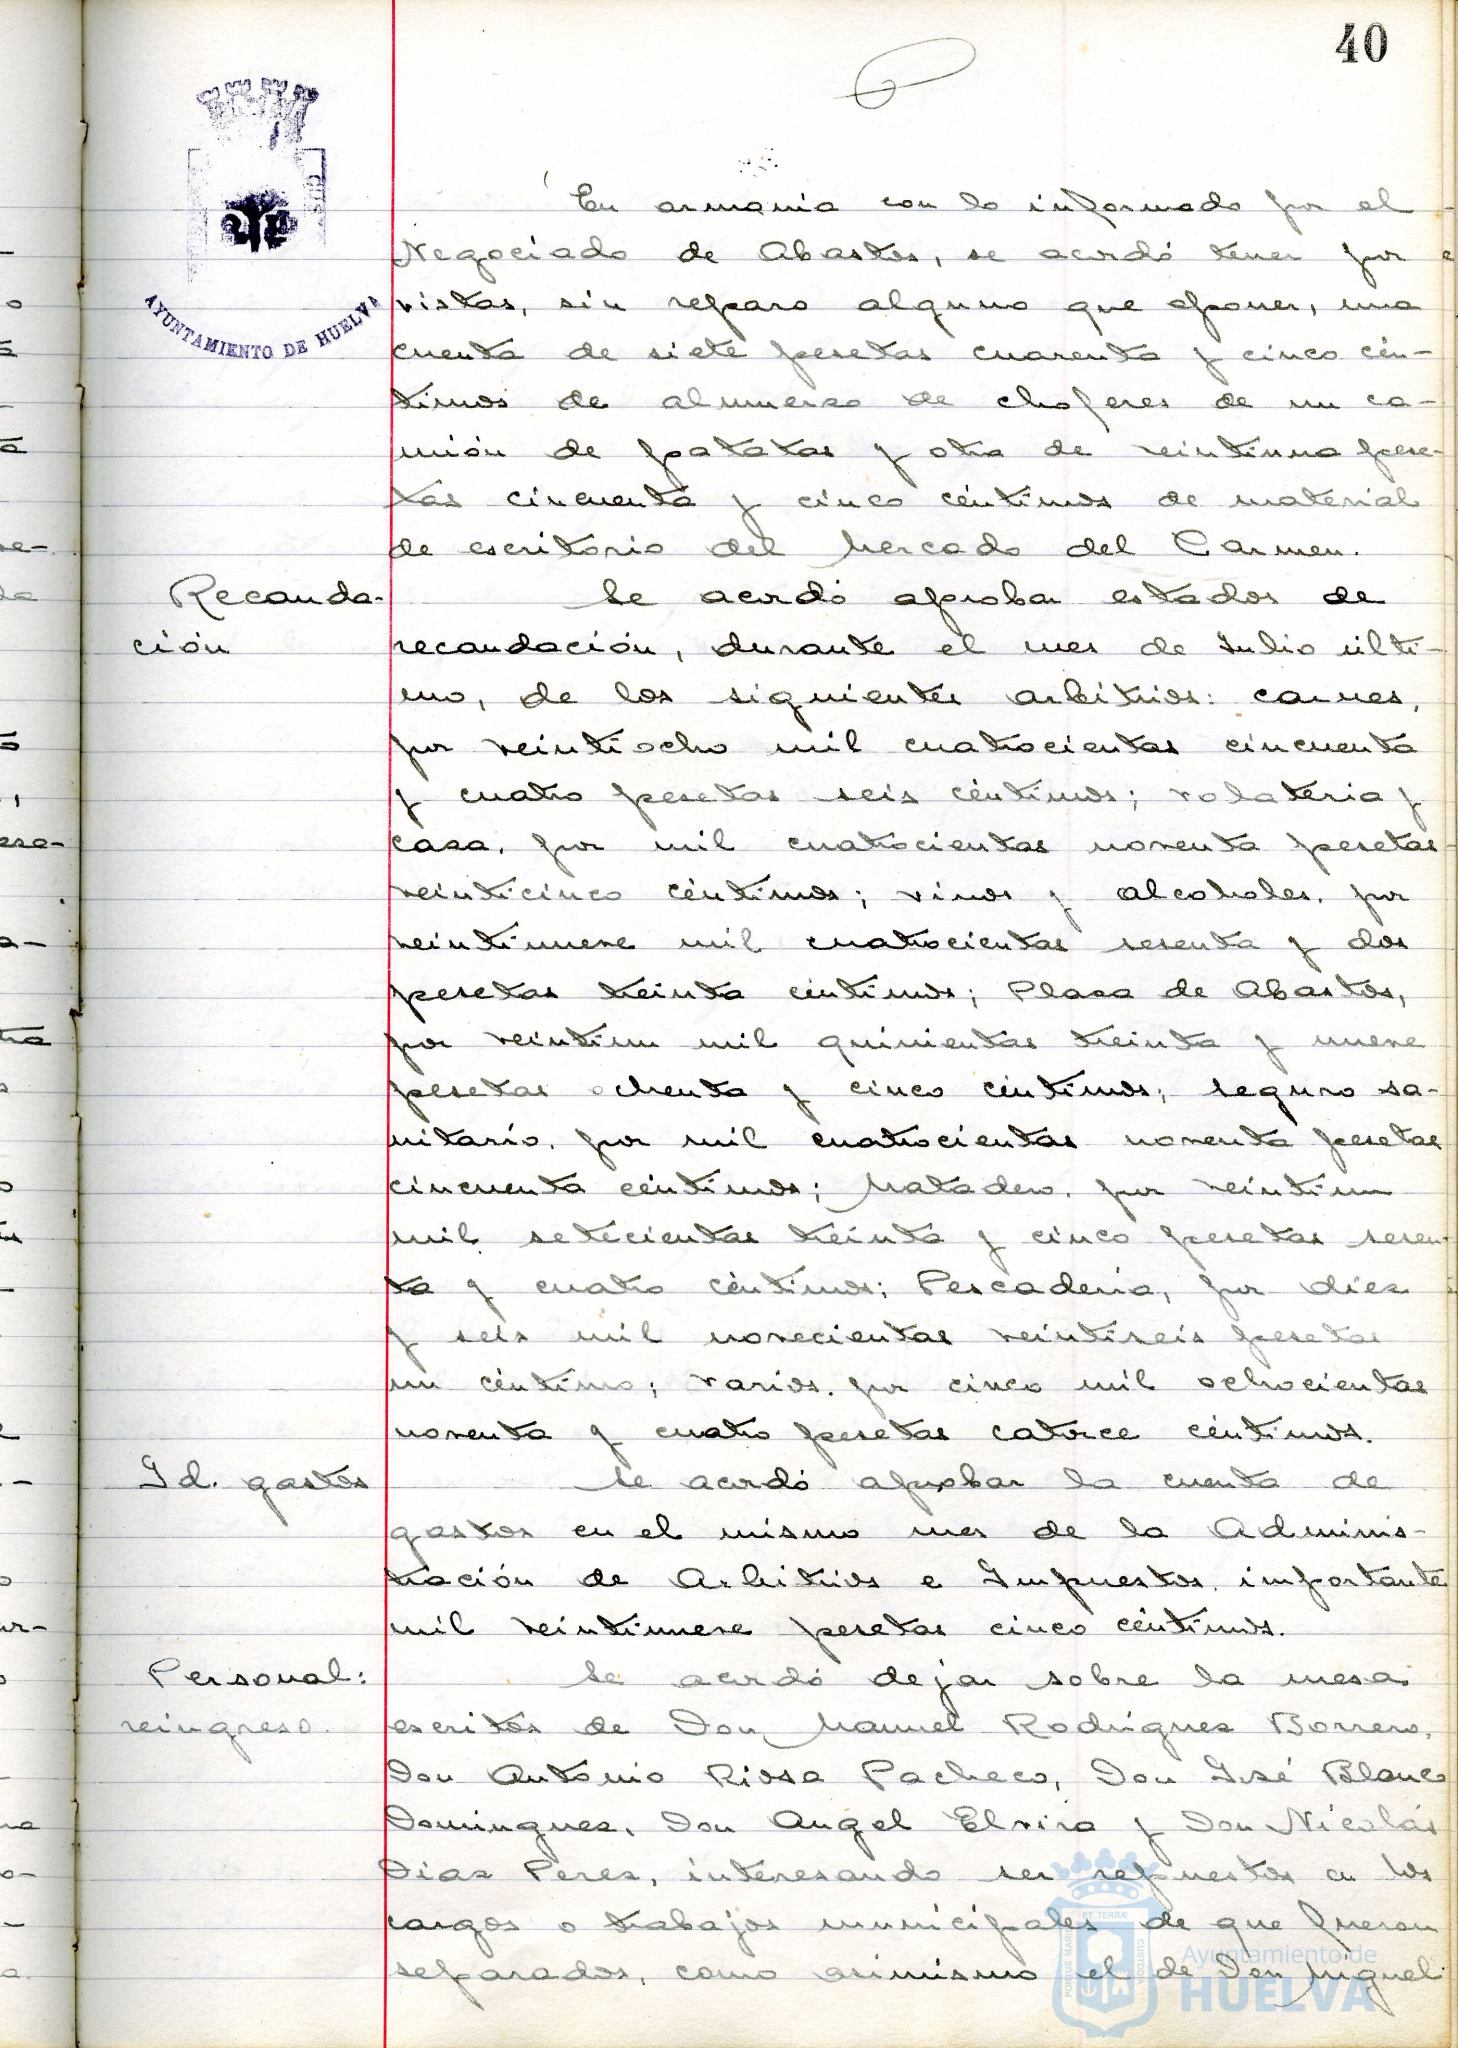 40
AYUNTAMIENTO DE HUELVA
En armonia con lo informado por el
Negociado de Abastos, se acordó tener por
vistas, sin reparo alguno que oponer, una
cuenta de siete pesetas cuarenta y cinco cén-
timos de almuerzo de choferes de un ca-
mión de patatas y otra de veintiuna pese-
tas cincuenta y cinco céntimos de material
de escritorio del Mercado del Carmen.
Recauda-
ción
Se acordó aprobar estados de
recaudación, durante el mes de Julio últi-
mo, de los siguientes arbitrios: carnes,
por veintiocho mil cuatrocientas cincuenta
y cuatro pesetas seis céntimos; volateria y
caza, por mil cuatrocientas noventa pesetas
veinticinco céntimos; vinos y alcoholes, por
veintinueve mil cuatrocientas sesenta y dos
pesetas treinta céntimos; Plaza de Abastos,
por veintiun mil quinientas treinta y nueve
pesetas ochenta y cinco céntimos; seguro sa-
nitario, por mil cuatrocientas noventa pesetas
cincuenta céntimos; Matadero, por veintiun
mil setecientas treinta y cinco pesetas sesen-
ta y cuatro céntimos; Pescaderia, por diez
y seis mil novecientas veintiseis pesetas
un céntimo; varios, por cinco mil ochocientas
noventa y cuatro pesetas catorce céntimos.
Id. gastos
Se acordó aprobar la cuenta de
gastos en el mismo mes de la Adminis-
tración de Arbitrios e Impuestos, importante
mil veintinueve pesetas cinco céntimos.
Personal:
reingreso.
Se acordó dejar sobre la mesa
escritos de Don Manuel Rodríguez Borrero,
Don Antonio Rioja Pacheco, Don José Blanco
Dominguez, Don Angel Elvira y Don Nicolás
Diaz Perez, interesando ser repuestos en los
cargos o trabajos municipales de que fueron
separados, como asimismo el de Don Miguel
Ayuntamiento de
HUELVA